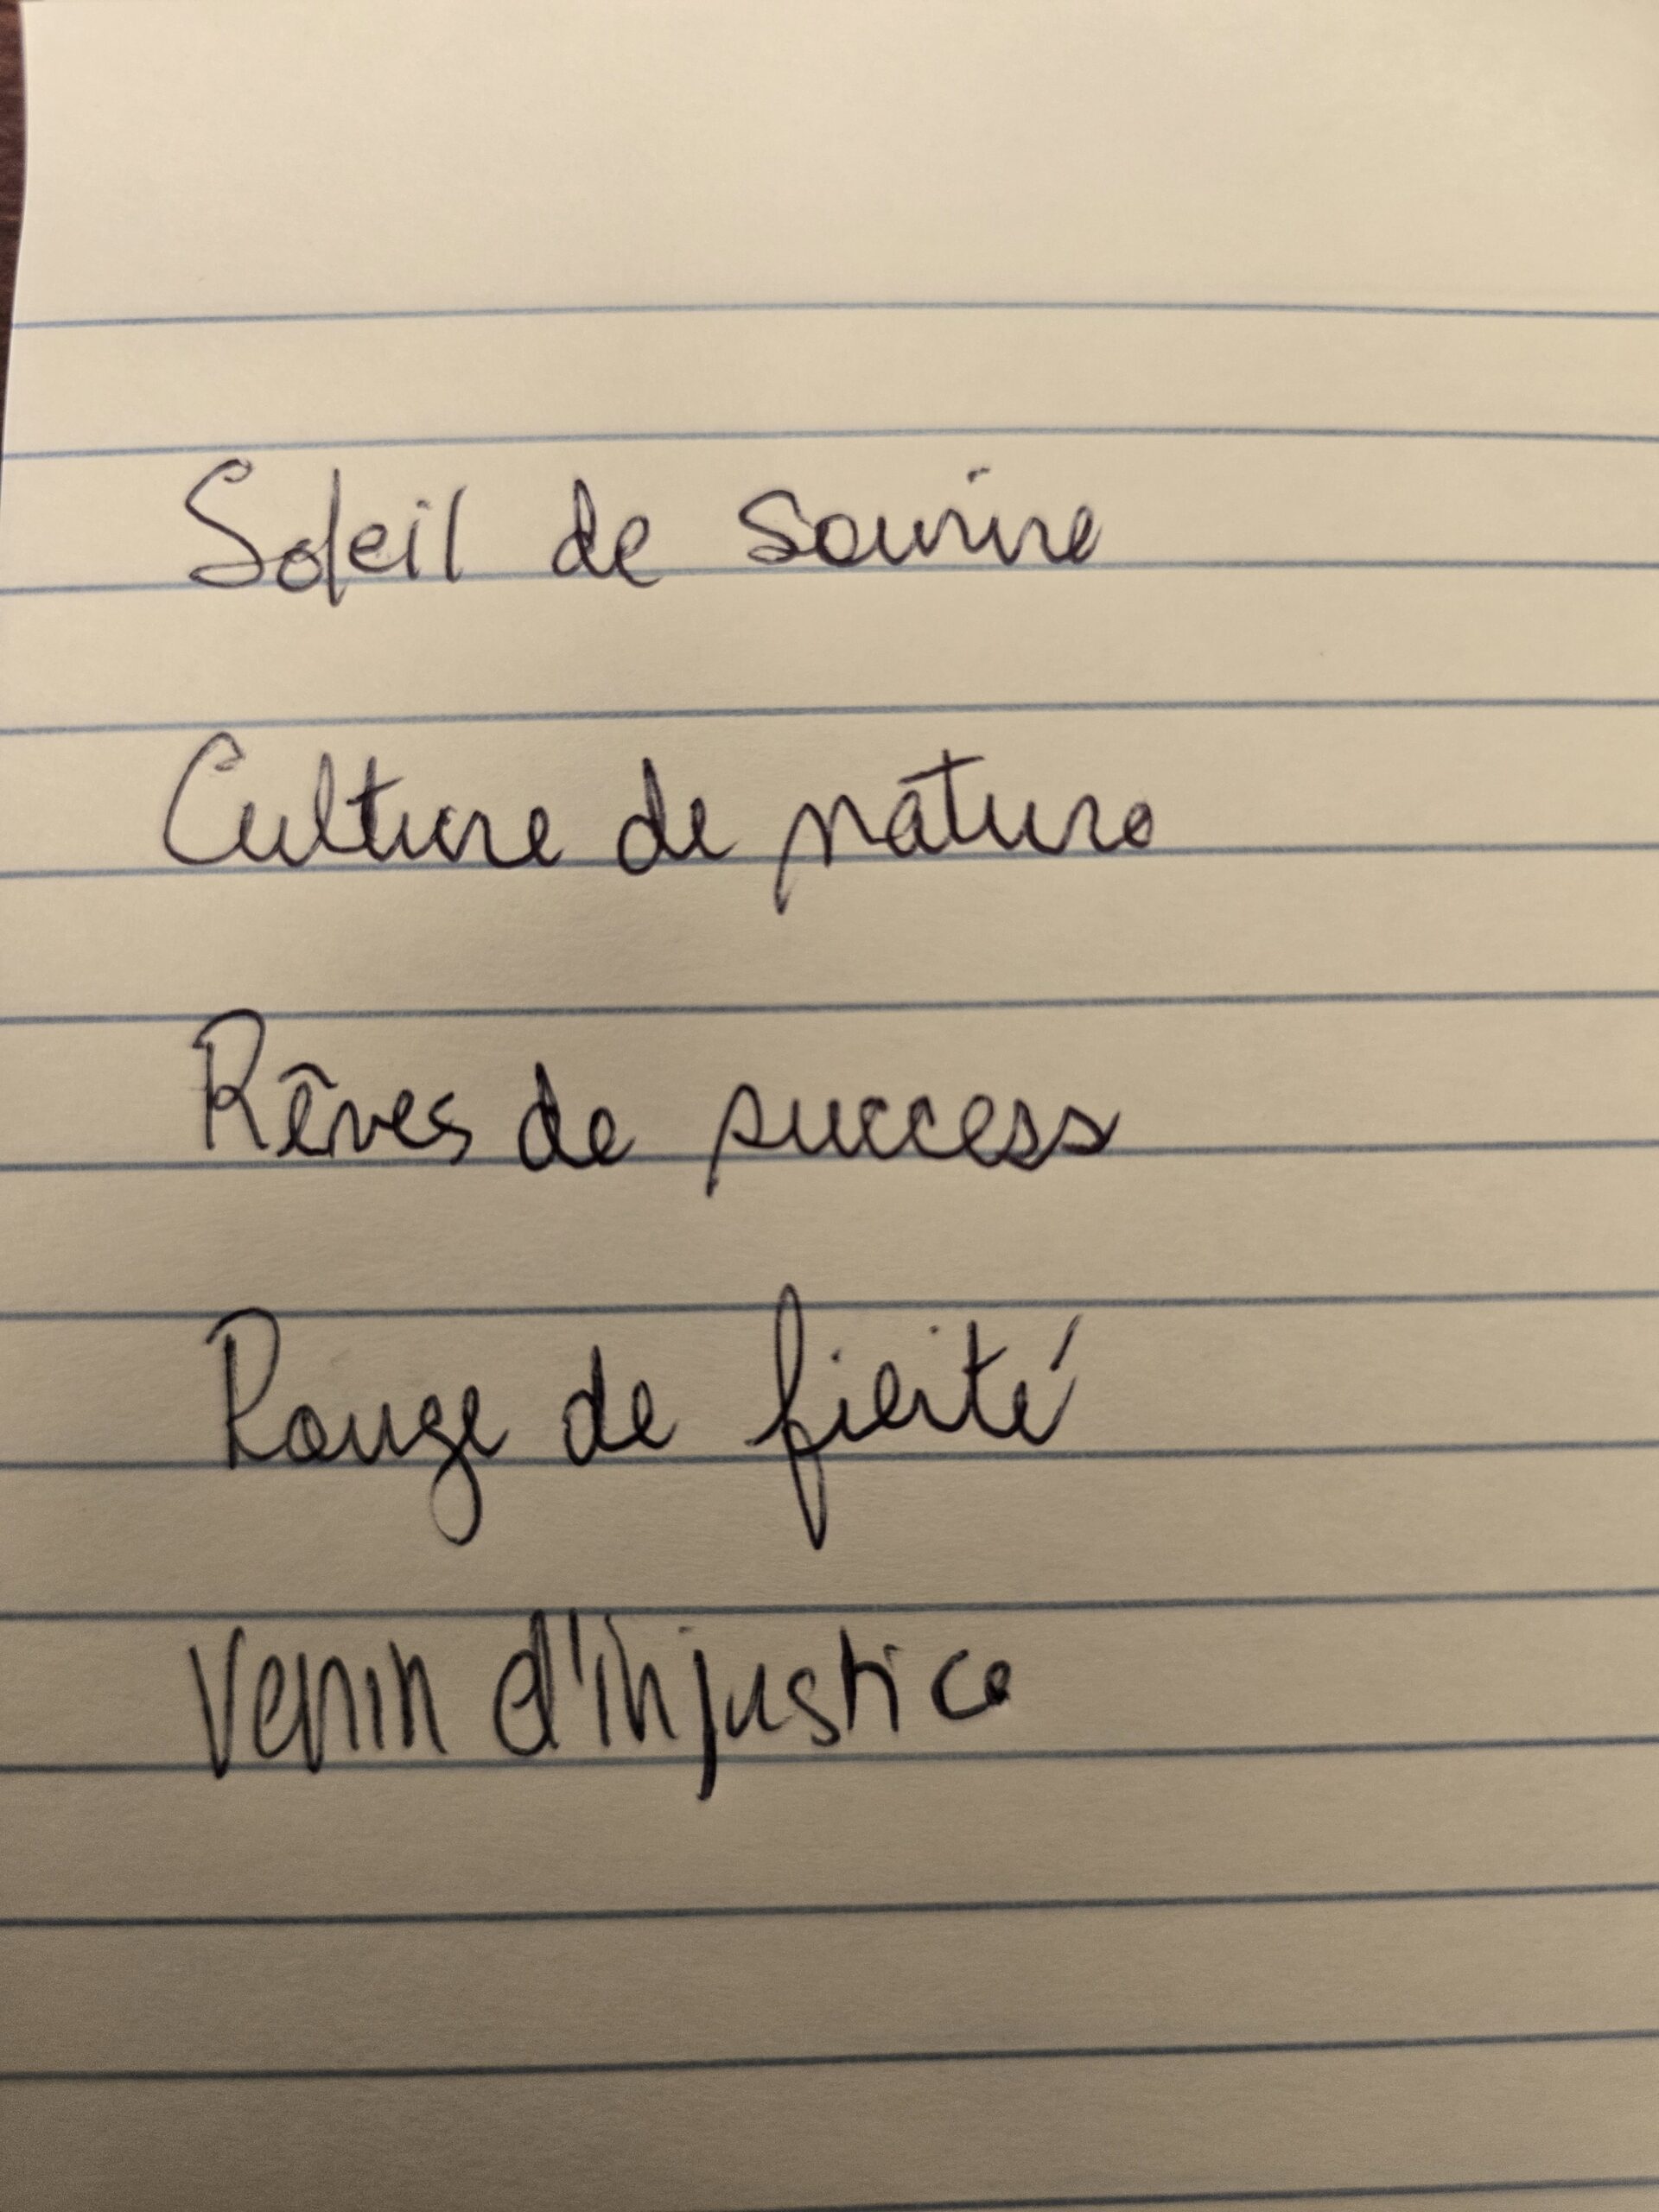 Soleil de sourire
Culture de nature
Rêves de success
Rouge de fierté
Venin d'injustice